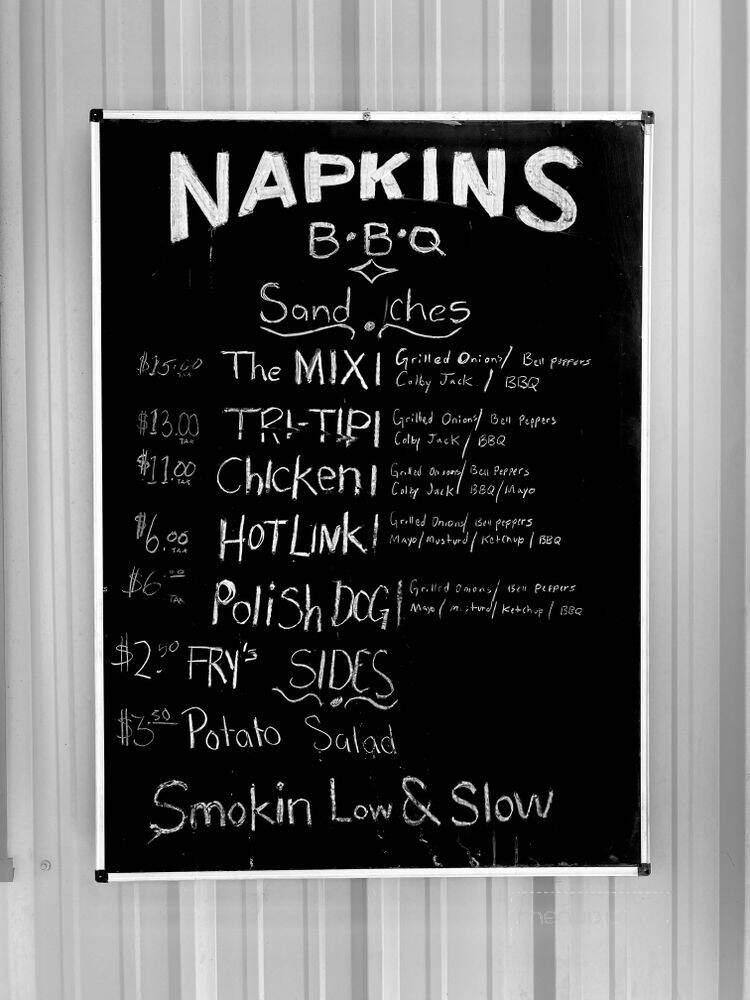 NAPKINS
B·B·Q
Sand ches
$15.00 TAX The MIX | Grilled Onions / Bell peppers
Colby Jack / BBQ
$13.00 TAX TRI-TIP | Grilled Onions / Bell Peppers
Colby Jack / BBQ
$11.00 TAX Chicken | Grilled Onions / Bell Peppers
Colby Jack / BBQ / Mayo
$6.00 TAX HOT LINK | Grilled Onions / Bell peppers
Mayo / Musturd / Ketchup / BBQ
$6.00 TAX Polish DOG | Grilled Onions / Bell Peppers
Mayo / Musturd / Ketchup / BBQ
$2.50 FRY's SIDES
$3.50 Potato Salad
Smokin Low & Slow